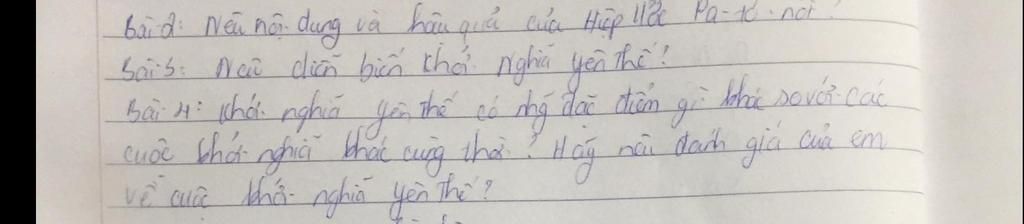 Bài 2: Nêu nội dung và hậu quả của Hiệp ước Pa-tơ-nốt!
Bài 3: Nêu diễn biến khởi nghĩa Yên Thế!
Bài 4: Khởi nghĩa Yên Thế có nhg đặc điểm gì khác so với các
cuộc khởi nghĩa khác cùng thời? Hãy nêu đánh giá của em
về cuộc khởi nghĩa Yên Thế?